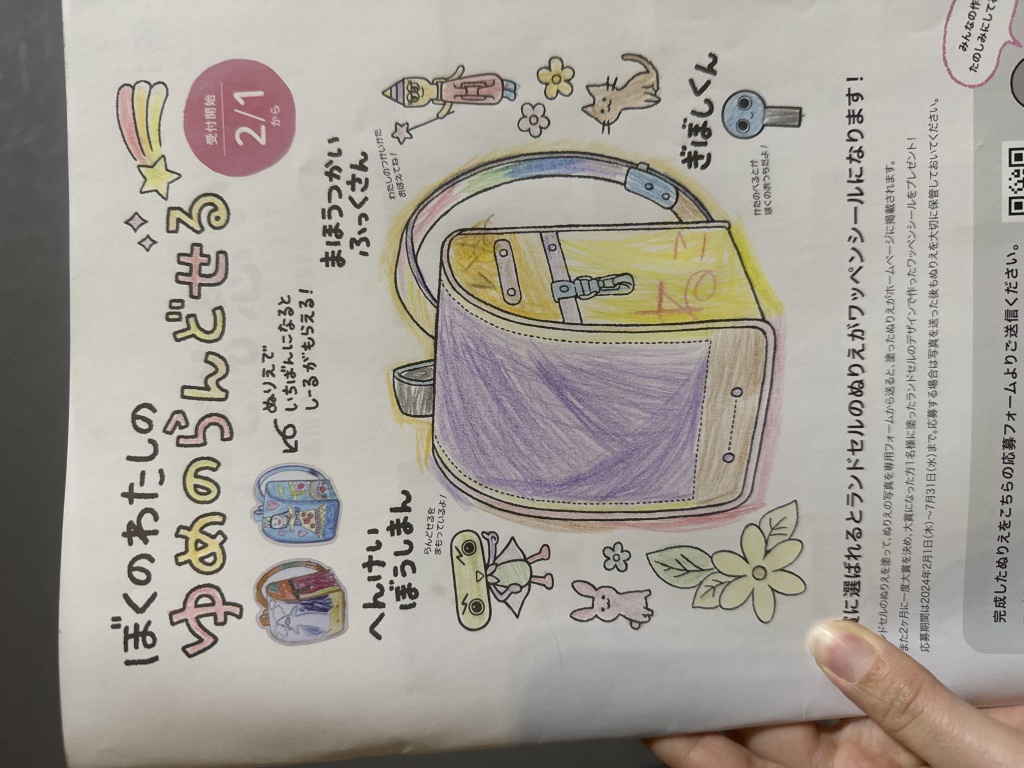 ぼくのわたしの
ゆめのらんどせる
受付開始
2/1
から
ぬりえで
いちばんになると
しーるがもらえる!
まほうつかい
ふっくさん
わたしのつかいかた
おぼえてね!
へんけい
ぼうしまん
らんどせるを
まもっているよ!
ぎぼしくん
かたのべるとが
ぼくのおうちだよ!
に選ばれるとランドセルのぬりえがワッペンシールになります!
ンドセルのぬりえを塗って、ぬりえの写真を専用フォームから送ると、塗ったぬりえがホームページに掲載されます。
また2ヶ月に一度大賞を決め、大賞になった方1名様に塗ったランドセルのデザインで作ったワッペンシールをプレゼント!
応募期間は2024年2月1日(木)〜7月31日(水)まで。応募する場合は写真を送った後もぬりえを大切に保管しておいてください。
みんなの作
たのしみにして
完成したぬりえをこちらの応募フォームよりご送信ください。